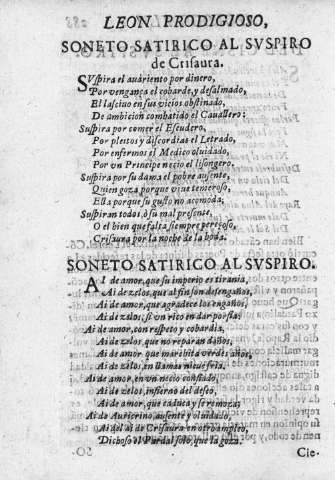 LEON PRODIGIOSO,
SONETO SATIRICO AL SVSPIRO
de Crisaura.
SVspira el auariento por dinero,
Por vengança el cobarde, y desalmado,
El lasciuo en sus vicios obstinado,
De ambicion combatido el Cauallero:
Suspira por comer el Escudero,
Por pleitos y discordias el Letrado,
Por enfermos el Medico oluidado,
Por vn Principe necio el lisongero.
Suspira por su dama el pobre ausente,
Quien goza porque viue temeroso,
Ella porque su gusto no acomoda;
Suspiran todos, ò su mal presente,
O el bien que falta siempre pereçoso,
Crisaura por la noche de la boda.
SONETO SATIRICO AL SVSPIRO.
AI de amor, que su imperio es tirania,
Ai de zelos, que al fin son desengaños,
Ai de amor, que agradece los engaños,
Ai de zelos, si vn rico en dar porfia;
Ai de amor, con respeto y cobardia,
Ai de zelos, que no reparan daños,
Ai de amor que marchita verdes años,
Ai de zelos, en llamas
Ai de amor, en vn necio confiado,
Ai de zelos, infierno del deseo,
Ai de amor, que caduca y se remoça;
Ai de Auricrino, ausente y oluidado,
Ai del ai de Crisaura en otro
Dichoso el Pardal solo, que la goza.
Cie-